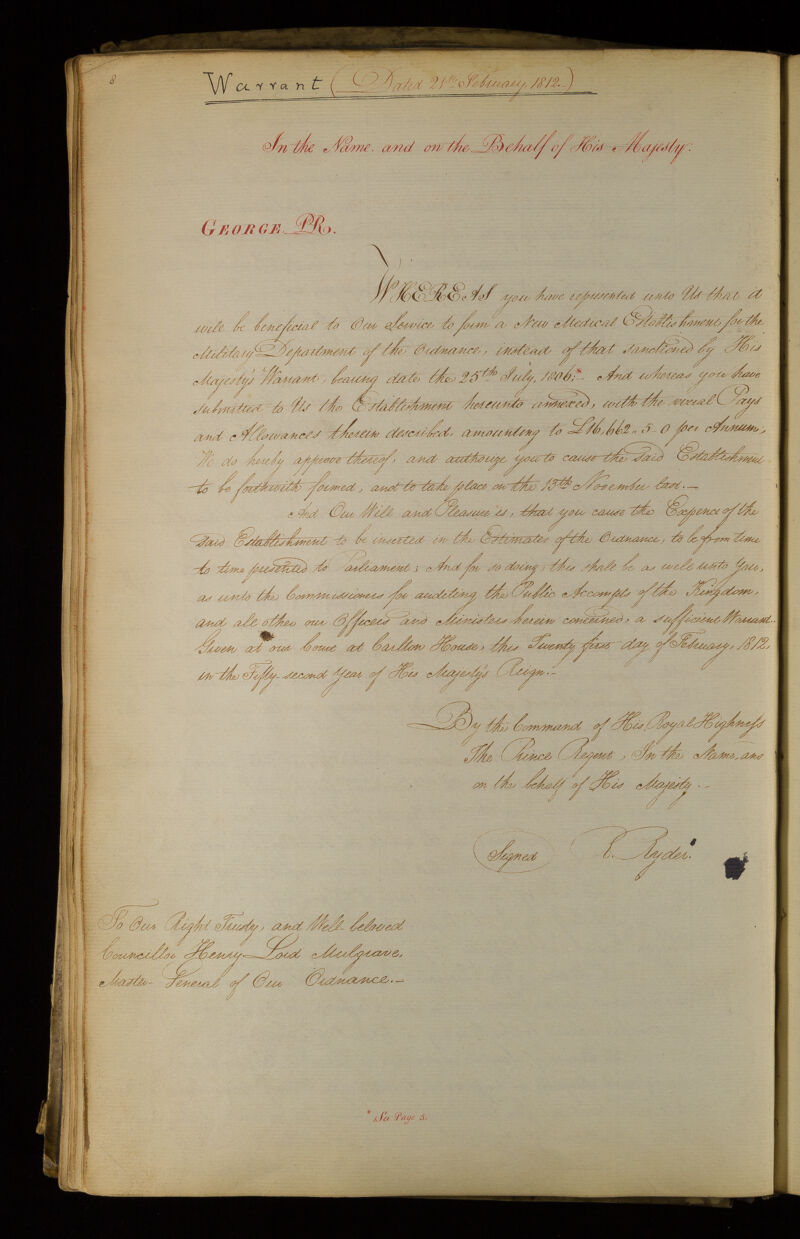 8
Warrant (Dated 21st February, 1812.)
In the Name and on the Behalf of His Majesty.
GEORGE PR.
WHEREAS you have represented unto Us that it
will be beneficial to Our Service to form a New Medical Establishment for the
Military Department of the Ordnance, instead of that sanctioned by His
Majesty's Warrant, bearing date the 25th July, 1806.* And whereas you have
submitted to Us the Establishment hereunto annexed, with the several Pays
and Allowances therein described, amounting to £16,662.. 5. 0 per Annum,
We do hereby approve thereof, and authorize you to cause the said Establishment
to be forthwith formed, and to take place on the 15th November last.—
And Our Will and Pleasure is, that you cause the Expence of the
said Establishment to be inserted in the Estimates of the Ordnance, to be from time
to time presented to Parliament; And for so doing, this shall be as well unto You,
as unto the Commissioners for auditing the Public Accompts of the Kingdom,
and all other our Officers and Ministers herein concerned, a sufficient Warrant.
Given at our Court at Carlton House, this Twenty first day of February, 1812,
in the Fifty second Year of His Majesty's Reign.—
By the Command of His Royal Highness
The Prince Regent, In the Name, and
on the behalf of His Majesty.—
Signed R. Ryder.
To Our Right Trusty, and Well beloved
Councillor Henry Lord Mulgrave,
Master-General of Our Ordnance.—
* See Page 5.